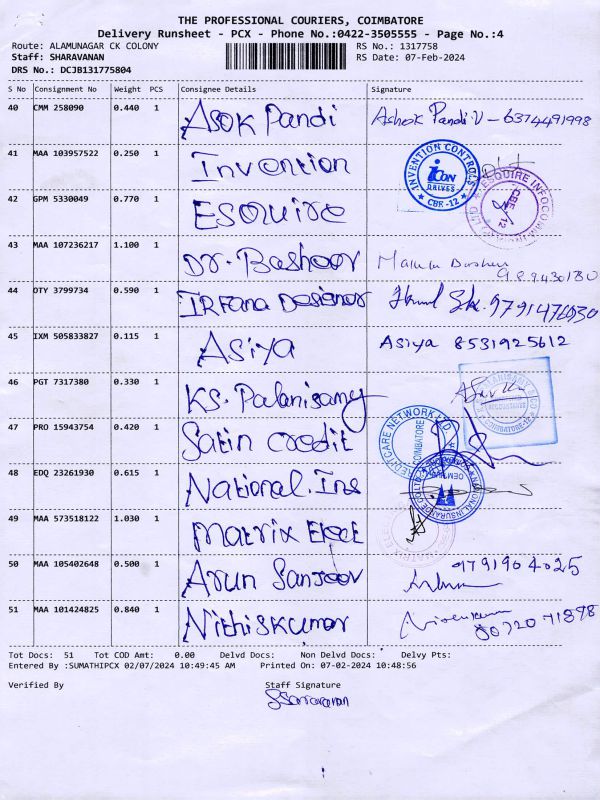 THE PROFESSIONAL COURIERS, COIMBATORE
Delivery Runsheet - PCX - Phone No.:0422-3505555 - Page No.:4
Route: ALAMUNAGAR CK COLONY RS No.: 1317758
Staff: SHARAVANAN RS Date: 07-Feb-2024
DRS No.: DCJB131775804
S No Consignment No Weight PCS Consignee Details Signature
40 CMM 258090 0.440 1 Asok Pandi Ashok Pandi.V - 6374491998
41 MAA 103957522 0.250 1 Invention INVENTION CONTROLS icon DRIVES CBE-12
42 GPM 5330049 0.770 1 Esquire ESQUIRE CBE 12
43 MAA 107236217 1.100 1 Dr. Bashoor
44 OTY 3799734 0.590 1 IRFana Designer 9791476030
45 IXM 505833827 0.115 1 Asiya Asiya 8531925612
46 PGT 7317380 0.330 1 KS. Palanisamy COIMBATORE-12
47 PRO 15943754 0.420 1 Satin credit NETWORK LTD COIMBATORE
48 EDQ 23261930 0.615 1 National. Ins
49 MAA 573518122 1.030 1 Matrix Elect
50 MAA 105402648 0.500 1 Arun Sanjeev 9791964025
51 MAA 101424825 0.840 1 Nithiskumar
Tot Docs: 51 Tot COD Amt: 0.00 Delvd Docs: Non Delvd Docs: Delvy Pts:
Entered By :SUMATHIPCX 02/07/2024 10:49:45 AM Printed On: 07-02-2024 10:48:56
Verified By Staff Signature